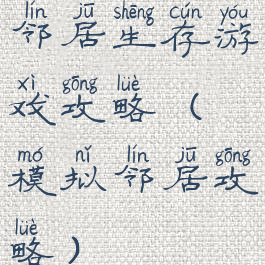 lín jū shēng cún yóu
邻居生存游
xì gōng lüè
戏攻略（
mó nǐ lín jū gōng
模拟邻居攻
lüè
略）